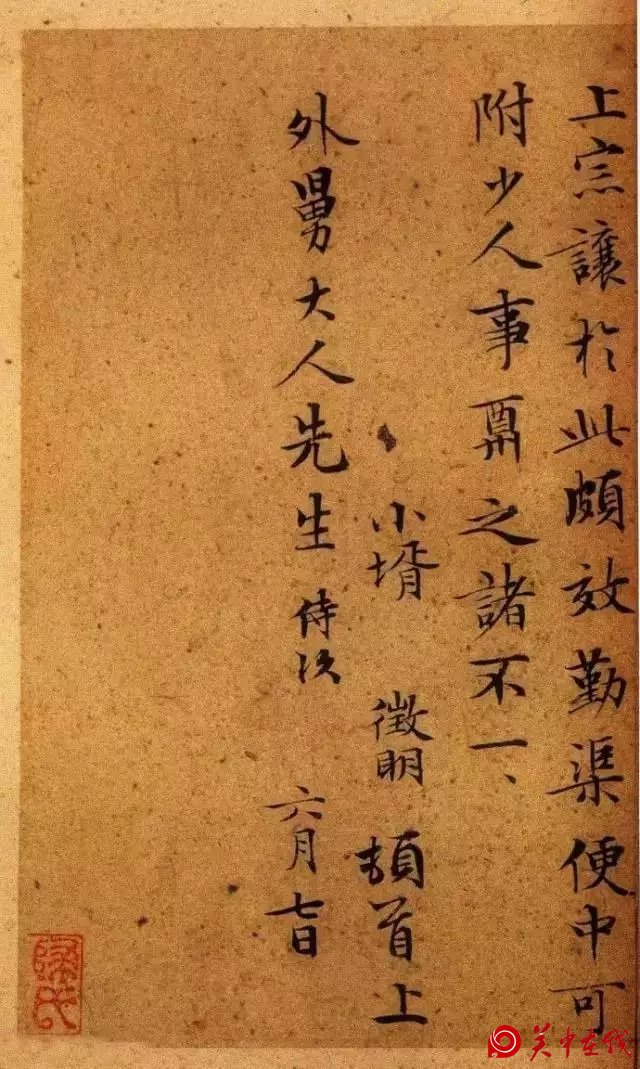 上宗讓於此頗效勤渠便中可
附少人事粛之諸不一、
小壻 徵明 頓首上
外舅大人先生 侍次
六月七日
关中在线